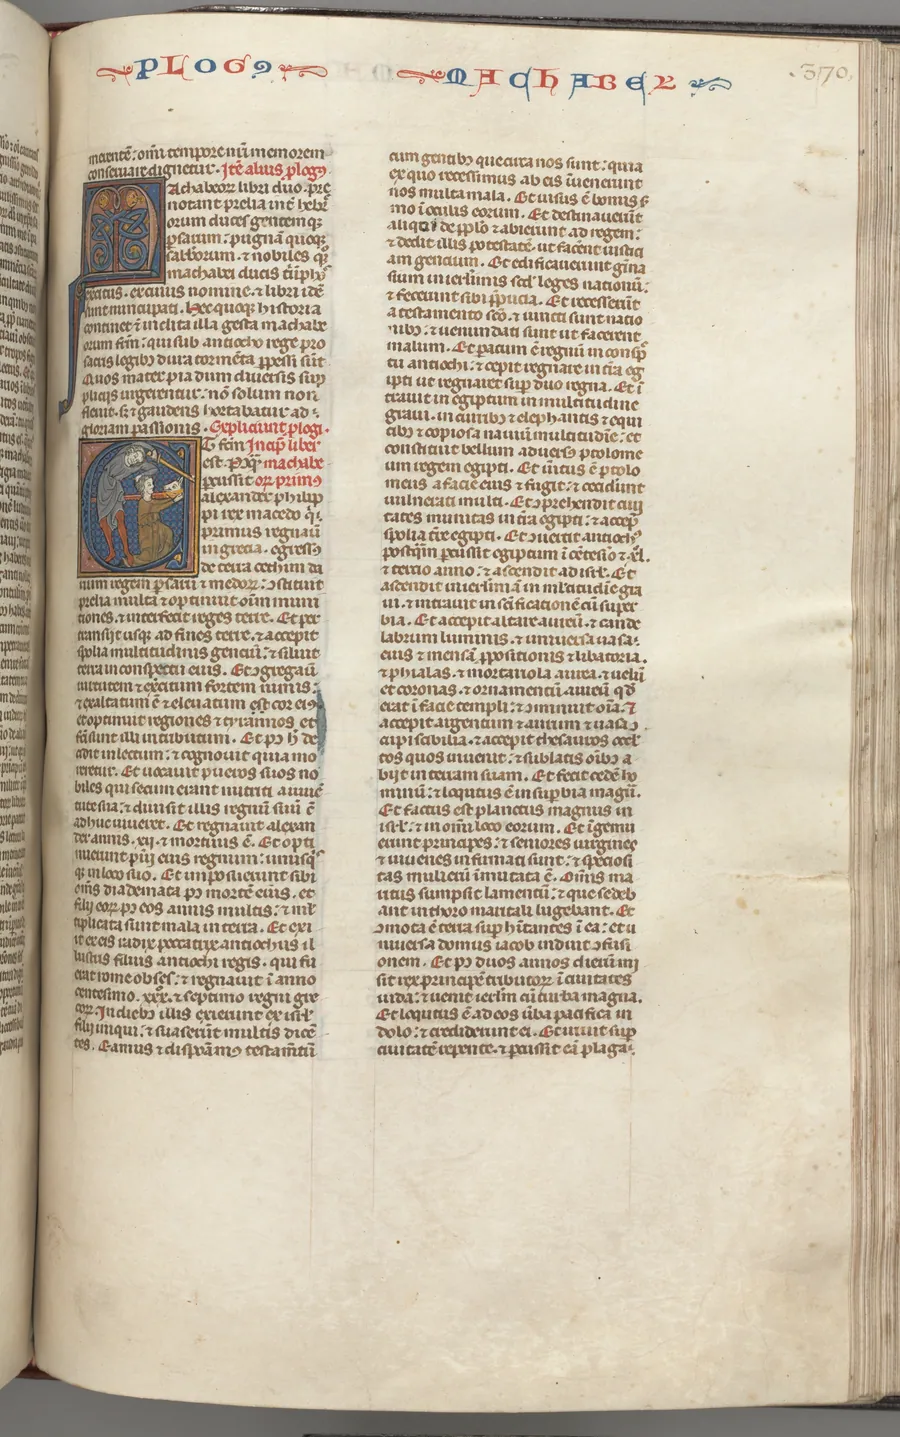 PLOG9 MACHABEOR
370
metentē: om̄i tempore nr̄i memorem
conseruare dignetur. Itē alius ꝓlog9
Achabeoꝝ libri duo. pre
notant prelia int̄ hebr̄
orum duces gentemqꝫ
ꝑsarum: pugnā quoqꝫ
sabborum. ⁊ nobiles qꝫ
machabei ducis
ercitus. ex cuius nomine. ⁊ libri idē
sunt nuncupati. Hec quoqꝫ historia
continet ī inclita illa gesta machabe
orum fr̄m: qui sub antiocho rege pro
sacris legibꝫ dira tormēta ꝑpessi sūt
Quos mater pia dum diuersis sup
plicijs urgerentur. nō solum non
fleuit. sꝫ ⁊ gaudens hortabatur ad
gloriam passionis. Expliciunt ꝓlogi.
ET fc̄m Incip̄ liber
est. Pꝰqꝫ machabe
ꝑcussit oꝝ prim9
alexander philip
pi rex macedo qͥ.
primus regnauit
in grecia. egress9
de terra cethim da
rium regem ꝑsaꝝ ⁊ medoꝝ: ↄstituit
prelia multa ⁊ optinuit oīm muni
tiones. ⁊ interfecit reges terre. Et per
transijt usqꝫ ad fines terre. ⁊ accepit
spolia multitudinis gentiū: ⁊ siluit
terra in conspectu eius. Et ↄgregauit
uirtutem ⁊ exercitum fortem nimis:
⁊ exaltatum ē ⁊ eleuatum est cor ei9
et optinuit regiones ⁊ tyrannos et
fc̄i sunt illi in tributum. Et pꝰ h̄ de
cidit in lectum: ⁊ cognouit quia mo
reretur. Et uocauit pueros suos no
biles qui secum erant nutriti a iuuē
tute sua: ⁊ diuisit illis regnū suū cū
adhuc uiueret. Et regnauit alexan
der annis. xij. ⁊ mortuus ē. Et opti
nuerunt pu̅i eius regnum: unusqͥsqꝫ
in loco suo. Et imposuerunt sibi
om̄s diademata pꝰ mortē eius. et
filij eoꝝ pꝰ eos annis multis: ⁊ ml̄
tiplicata sunt mala in terra. Et exi
it ex eis radix peccatrix antiochus il
lustris filius antiochi regis. qui fu
erat rome obses: ⁊ regnauit ī anno
centesimo. xxx. ⁊ septimo regni gre
coꝝ. In diebꝫ illis exierunt ex isr̄l
filij iniqui: ⁊ suaserunt multis dicē
tes. Eamus ⁊ disponam9 testam̄tū
cum gentibꝫ que circa nos sunt: quia
ex quo recessimus ab eis īuenerunt
nos multa mala. Et uisus ē bonus s̄
mo ī oculis eorum. Et destinauerūt
aliqͥ de pp̄lo ⁊ abierunt ad regem:
⁊ dedit illis potestatē. ut facerēt iustici
am gentium. Et edificauerunt gīna
sium in ierl̄imis scd̄ leges nationū:
⁊ fecerunt sibi p̄pucia. Et recesserūt
a testamento sc̄o. ⁊ iuncti sunt natio
nibꝫ: ⁊ uenundati sunt ut facerent
malum. Et paratum ē regnū in consp̄
tu antiochi: ⁊ cepit regnare in t̄ra eg
ipti ut regnaret sup̄ duo regna. Et ī
trauit in egiptum in multitudine
graui. in curribꝫ ⁊ elephantis ⁊ equi
tibꝫ ⁊ copiosa nauiū multitudīe: et
constituit bellum aduersꝫ ptolome
um regem egipti. Et ueritus ē ptolo
meus a facie eius ⁊ fugit: ⁊ ceciderunt
uulnerati multi. Et ↄprehendit ciui
tates munitas in t̄ra egipti: ⁊ accep̄
spolia t̄re egipti. Et ↄuertit antioch9
postqͣm ꝑcussit egiptum ī cētesīo ⁊ xl.
⁊ tercio anno: ⁊ ascendit ad isr̄l. Et
ascendit ierl̄imam in ml̄titudīe gra
ui. ⁊ intrauit in sc̄ificationē cū super
bia. Et accepit altare aureū. ⁊ cande
labrum luminis. ⁊ uniuersa uasa
eius ⁊ mensā ꝓpositionis ⁊ libatoria.
⁊ phialas. ⁊ mortariola aurea. ⁊ uelū
et coronas. ⁊ ornamentū aureū qd̄
erat ī facie templi: ⁊ ↄminuit oīa. Et
accepit argentum ⁊ aurum ⁊ uasa ↄ
cupiscibilia. ⁊ accepit thesauros occl̄
tos quos inuenit: ⁊ sublatis oībꝫ a
bijt in terram suam. Et fecit cedē ho
minū: ⁊ loqutus ē in sup̄bia magna.
Et factus est planctus magnus in
isr̄l: ⁊ in om̄i loco eorum. Et īgemu
erunt principes: ⁊ seniores uirgines
⁊ iuuenes infirmati sunt: ⁊ speciosi
tas mulierū īmutata ē. Om̄is ma
ritus sumpsit lamentū: ⁊ que sedeb
ant in thoro maritali lugebant. Et
ↄmota ē terra sup̄ hītantes ī ea: et u
niuersa domus iacob induit ↄfusi
onem. Et pꝰ duos annos dierū mi
sit rex principē tributoꝝ ī ciuitates
iuda: ⁊ uenit ierl̄m cū turba magna.
Et loqutus ē ad eos uerba pacifica in
dolo: ⁊ crediderunt ei. Et irruit sup̄
ciuitatē repente. ⁊ ꝑcussit eā plaga